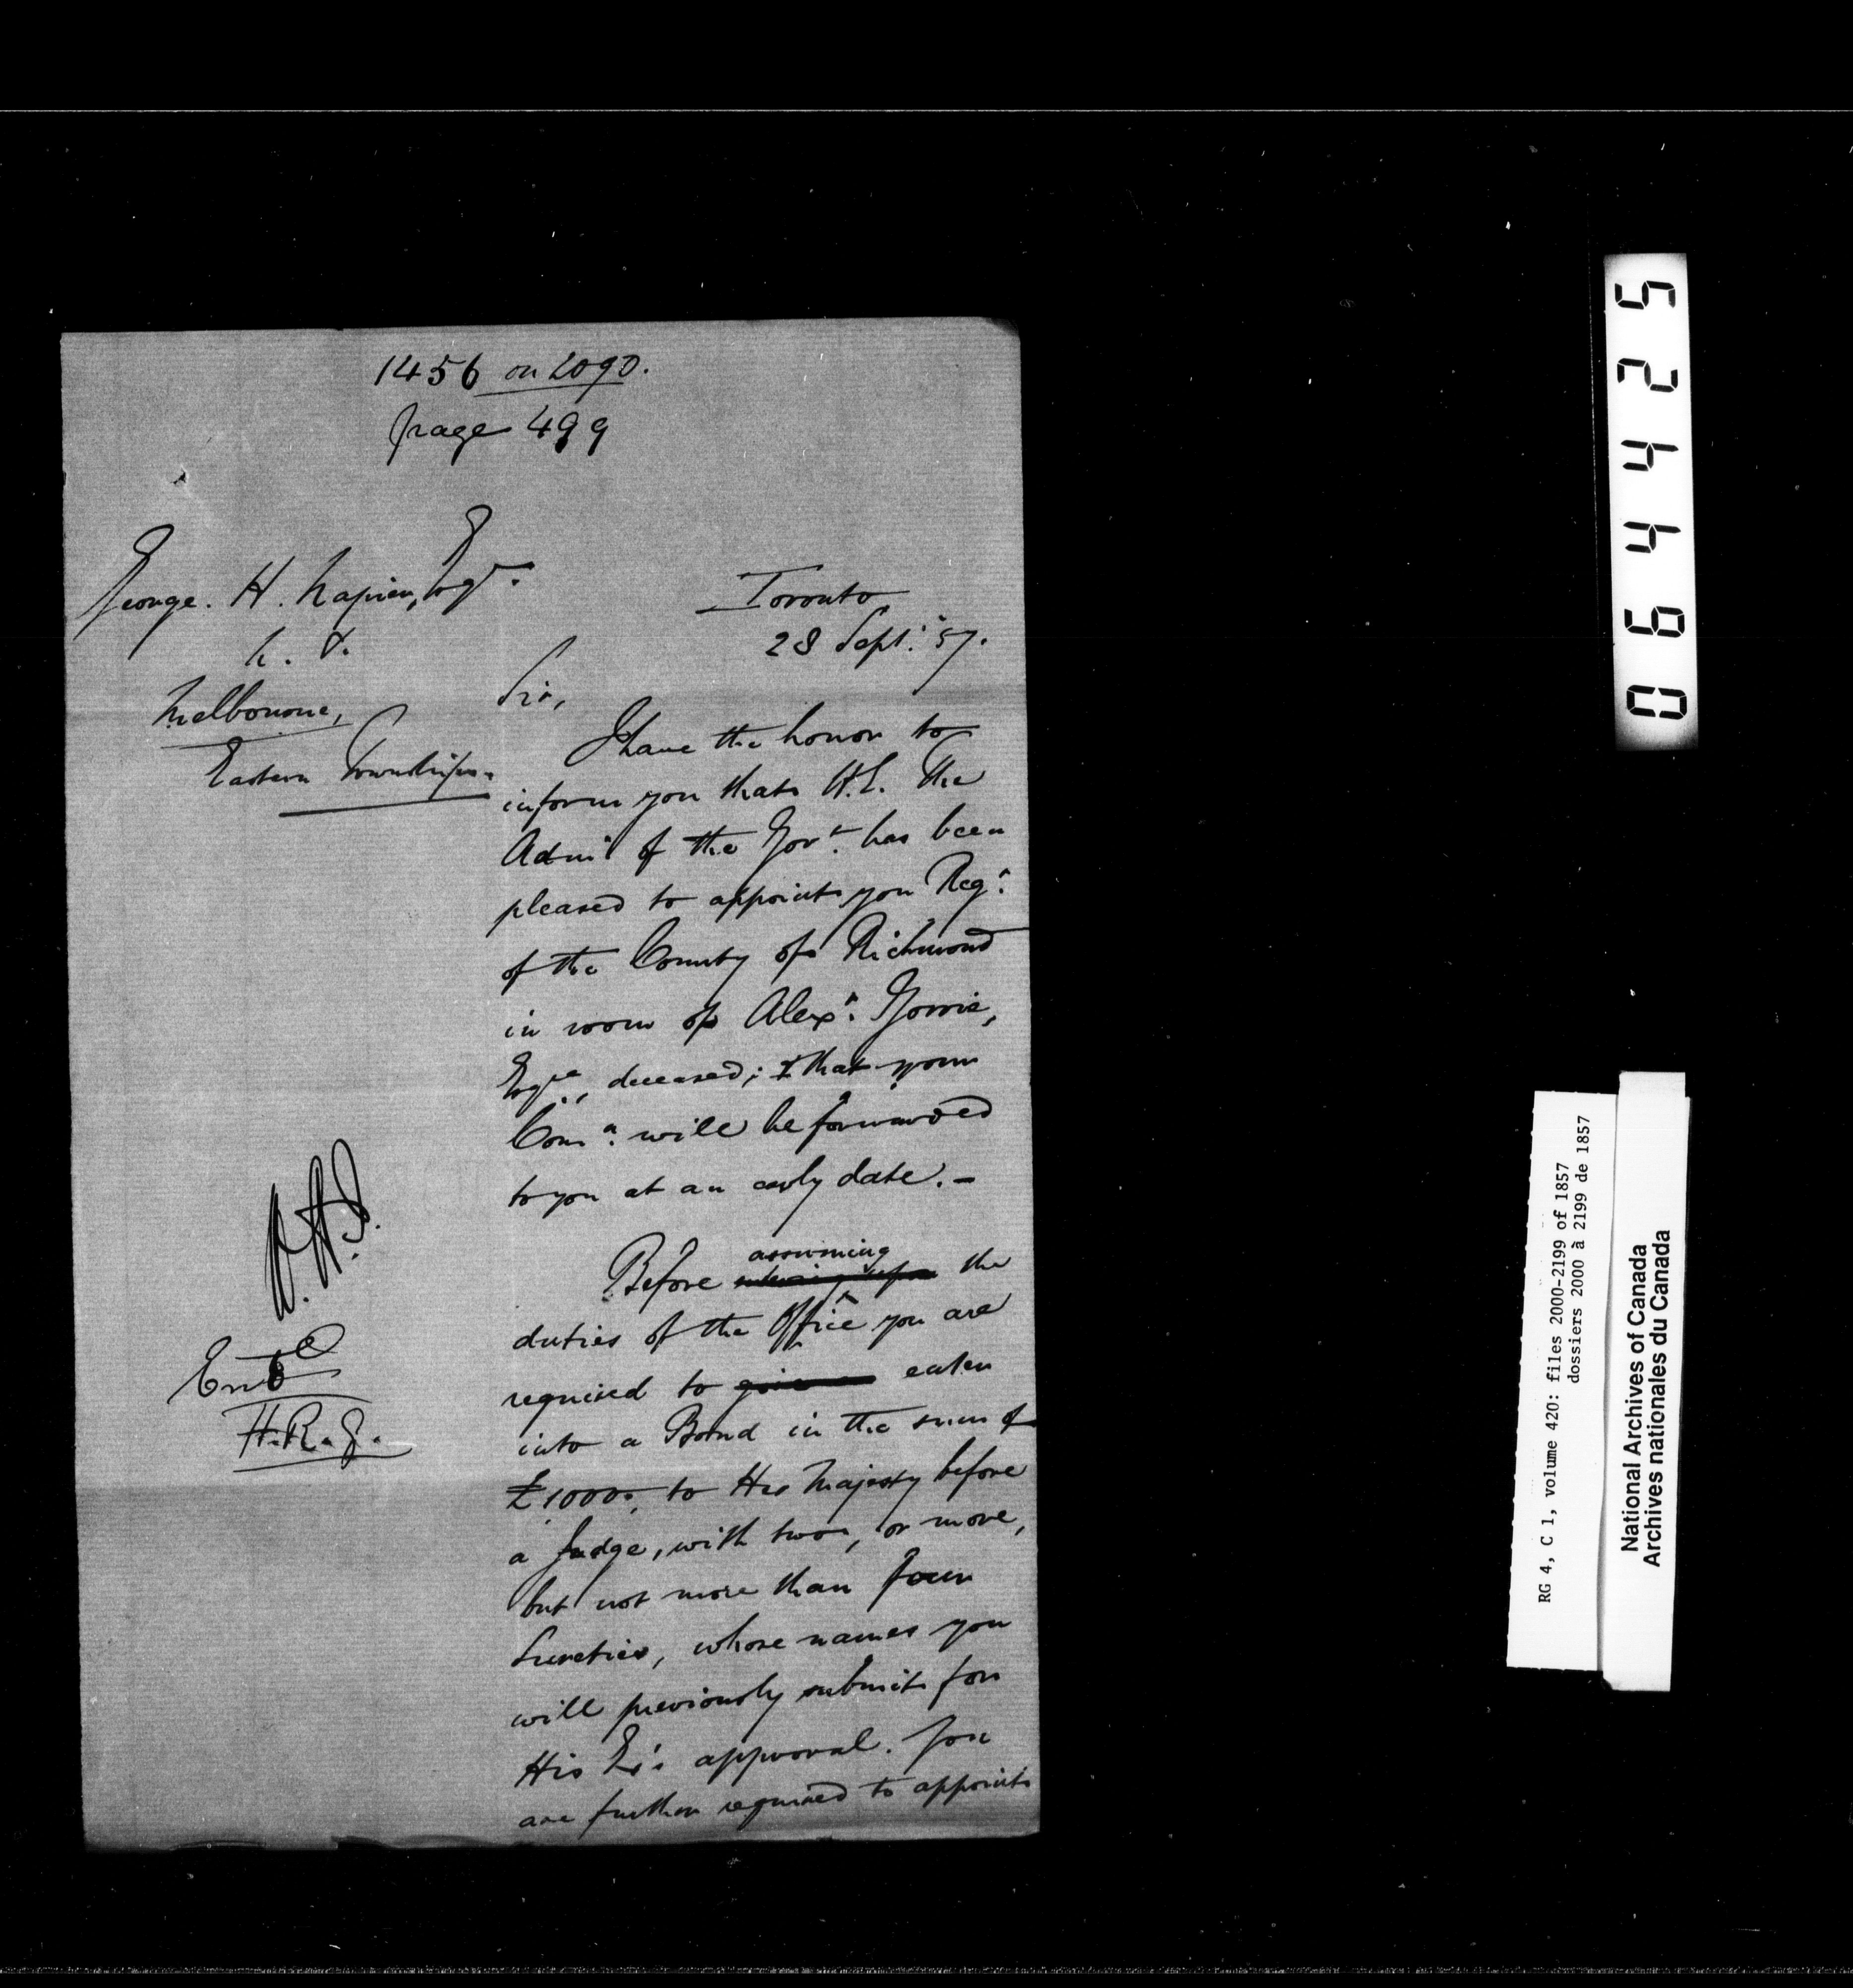 1456 on 2090.
page 499
George. H. Napier, Esqr.
Melbourne,
Eastern Townships.
Toronto
28 Sept: '57.
Sir,
I have the honor to
inform you that H.E. The
Admr of the Govt. has been
pleased to appoint you Regr.
of the County of Richmond
in room of Alexr. Gorrie,
Esqre, deceased; & that your
Comn. will be forwarded
to you at an early date. –
Before assuming the
duties of the Office you are
required to give enter
into a Bond in the sum of
£1000. to Her Majesty before
a Judge, with two, or more,
but not more than four
Sureties, whose names you
will previously submit for
His Ex's approval. You
are further required to appoint
Entd
H.R.G.
064425
RG 4, C 1, volume 420: files 2000-2199 of 1857
dossiers 2000 à 2199 de 1857
National Archives of Canada
Archives nationales du Canada